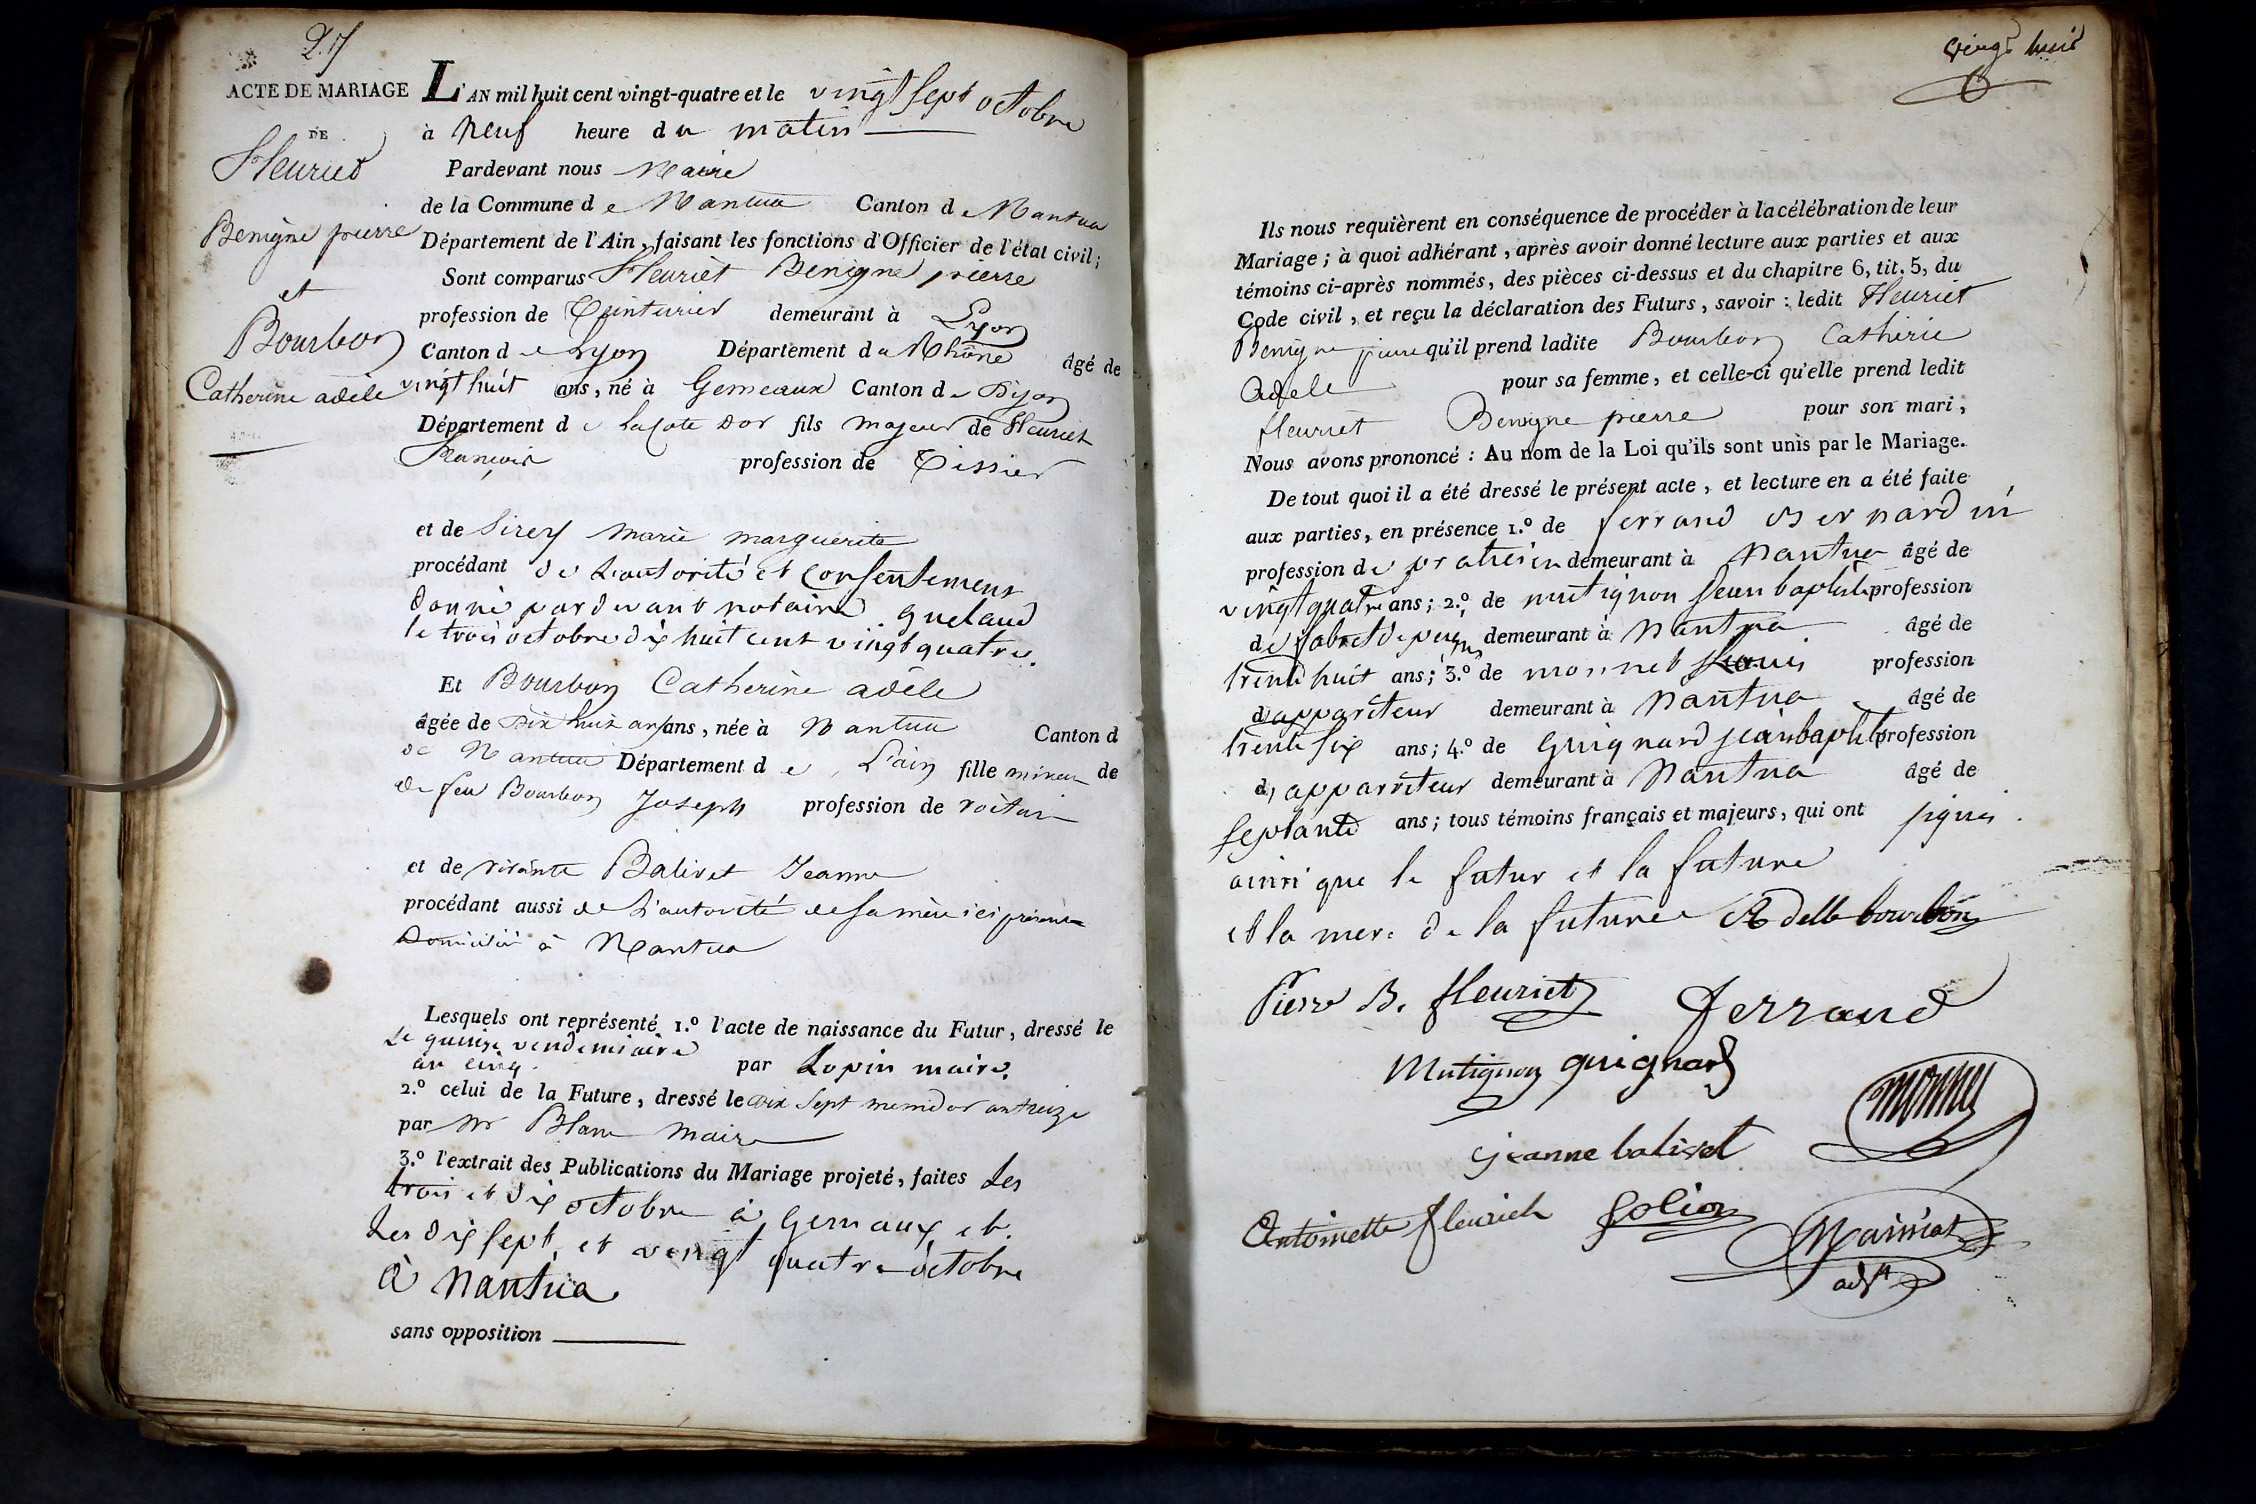 27
ACTE DE MARIAGE
DE
Fleuriet
Benigne pierre
et
Bourbon
Catherine adèle
L'AN mil huit cent vingt-quatre et le vingt sept octobre
à neuf heure du matin
Pardevant nous Maire
de la Commune de Nantua Canton de Nantua
Département de l'Ain, faisant les fonctions d'Officier de l'état civil;
Sont comparus Fleuriet Benigne pierre
profession de Teinturier demeurant à Lyon
Canton de Lyon Département du Rhône âgé de
vingt huit ans, né à Gemeaux Canton de Dijon
Département de La Cote Dor fils majeur de Fleuriet
François profession de Tissier
et de Sirey marie marguerite
procédant de L'autorité et consentement
donné pardevant notaire
le trois octobre dix huit cent vingt quatre.
Et Bourbon Catherine adèle
âgée de Dix huit ans ans, née à Nantua Canton d
de Nantua Département de L'ain fille mineur de
de feu Bourbon Joseph profession de voiturier
et de vivante Balivet Jeanne
procédant aussi de L'autorité de sa mère ici présente
Domiciliée à Nantua
Lesquels ont représenté 1.º l'acte de naissance du Futur, dressé le
Le quinze vendemiaire
an cinq. par Lopin maire.
2.º celui de la Future, dressé le dix sept messidor an treize
par Mr Blanc maire
3.º l'extrait des Publications du Mariage projeté, faites Les
trois et dix octobre à Gemaux et
Les dix sept et vingt quatre octobre
à Nantua
sans opposition
vingt huit
Ils nous requièrent en conséquence de procéder à la célébration de leur
Mariage; à quoi adhérant, après avoir donné lecture aux parties et aux
témoins ci-après nommés, des pièces ci-dessus et du chapitre 6, tit. 5, du
Code civil, et reçu la déclaration des Futurs, savoir : ledit Fleuriet
Benigne pierre qu'il prend ladite Bourbon Catherie
Adele pour sa femme, et celle-ci qu'elle prend ledit
fleuriet Benigne pierre pour son mari,
Nous avons prononcé : Au nom de la Loi qu'ils sont unis par le Mariage.
De tout quoi il a été dressé le présent acte, et lecture en a été faite
aux parties, en présence 1.º de ferrand Bernardin
profession de praticien demeurant à Nantua âgé de
vingt quatre ans; 2.º de mutignon Jean baptiste profession
de fabt de peignes demeurant à Nantua âgé de
trente huit ans; 3.º de monnet Louis profession
d'appariteur demeurant à Nantua âgé de
trente six ans; 4.º de Guignard jean baptiste profession
d, apparriteur demeurant à Nantua âgé de
septante ans; tous témoins français et majeurs, qui ont signés.
ainsi que le futur et la future
et la mere de la future Adelle bourbon
Pierre B. fleuriet Ferrand
Mutignon guignard
monnet
jeanne balivet
Antoinette fleuriet
adjt